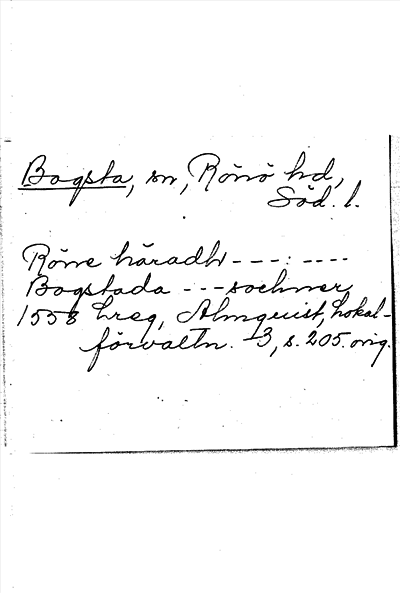 Bogsta, sn, Rönö hd,
Söd. l.
Röne häradh ---:----
Bogstada --- sochner
1558 Lreg, Almquist, Lokal-
förvaltn. 3, s. 205. orig.